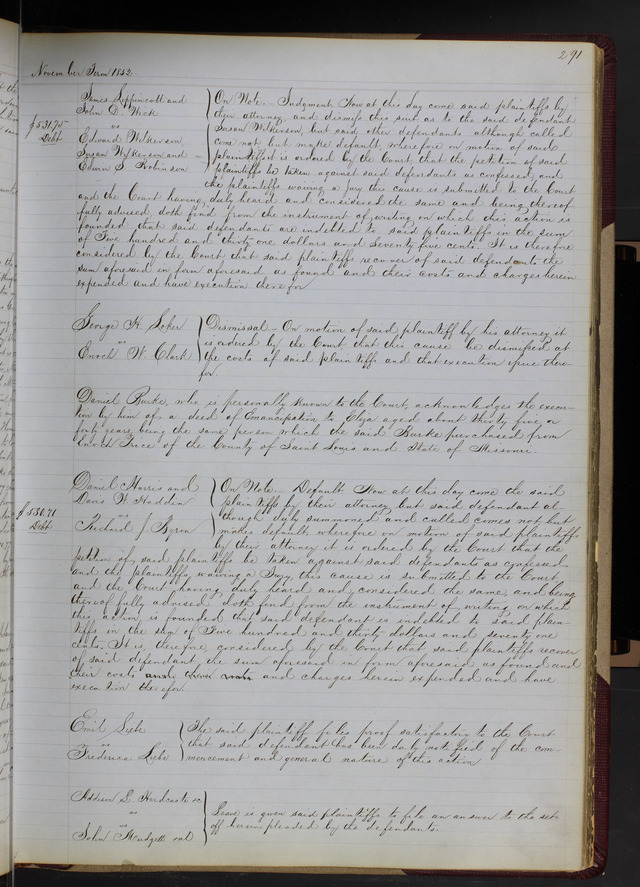 291
November Term 1852.
James Lippincott and
John D. Wick
vs
Edward Wilkerson,
Susan Wilkerson and
Edwin S. Robinson
$531.75
Debt
On Note. Judgment. Now at this day come said plaintiffs by
their attorney, and dismiss this suit as to the said defendant
Susan Wilkerson, but said other defendants although called
come not but make default, wherefore on motion of said
plaintiffs it is ordered by the Court, that the petition of said
plaintiffs be taken against said defendants as confessed, and
the plaintiffs waiving a Jury this cause is submitted to the Court
and the Court having duly heard and considered the same and being thereof
fully advised, doth find from the instrument of writing on which this action is
founded that said defendants are indebted to said plaintiffs in the sum
of Five hundred and thirty one dollars and seventy five cents. It is therefore
considered by the Court that said plaintiffs recover of said defendants the
sum aforesaid in form aforesaid as found and their costs and charges herein
expended and have execution therefor
George H. Soker
vs
Enoch W. Clark
Dismissal - On motion of said plaintiff by his attorney it
is ordered by the Court that this cause be dismissed at
the costs of said plaintiffs and that execution issue there-
for.
Daniel Burke, who is personally known to the Court, acknowledges the execu-
tion by him of a deed of Emancipation to Eliza aged about thirty five or
forty years, being the same person which the said Burke purchased from
Enoch Price of the County of Saint Louis and State of Missouri.
Daniel Harris and
Davis W. Hadden
vs
Richard J. Byron
$530.71
Debt
On Note. Default. Now at this day come the said
plaintiffs by their attorney but said defendant al-
though duly summoned and called comes not but
makes default, wherefore on motion of said plaintiffs
by their attorney it is ordered by the Court that the
petition of said plaintiffs be taken against said defendants as confessed
and the plaintiffs waiving a Jury this cause is submitted to the Court
and the Court having duly heard and considered the same and being
thereof fully advised doth find from the instrument of writing on which
this action is founded that said defendant is indebted to said plain-
tiffs in the sum of Five hundred and thirty dollars and seventy one
cents. It is therefore considered by the Court that said plaintiffs recover
of said defendant the sum aforesaid in form aforesaid as found and
their costs and charges herein expended and have
execution therefor.
Emil Siebe
vs
Frederica Siebe
The said plaintiff files proof satisfactory to the Court
that said defendant has been duly notified of the com-
mencement and general nature of this action
Addison S. Hardcastle
vs
John Mudgett
Leave is given said plaintiffs to file an answer to the set
off herein pleaded by the defendants.